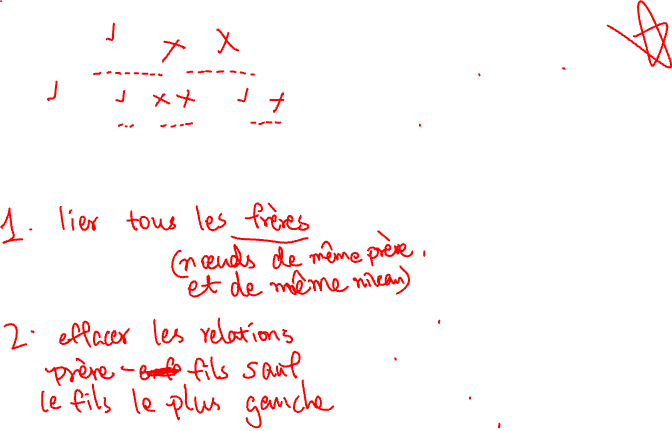 1. lier tous les frères
(nœuds de même prère,
et de même niveau)
2. effacer les relations
prère - fils sauf
le fils le plus gauche